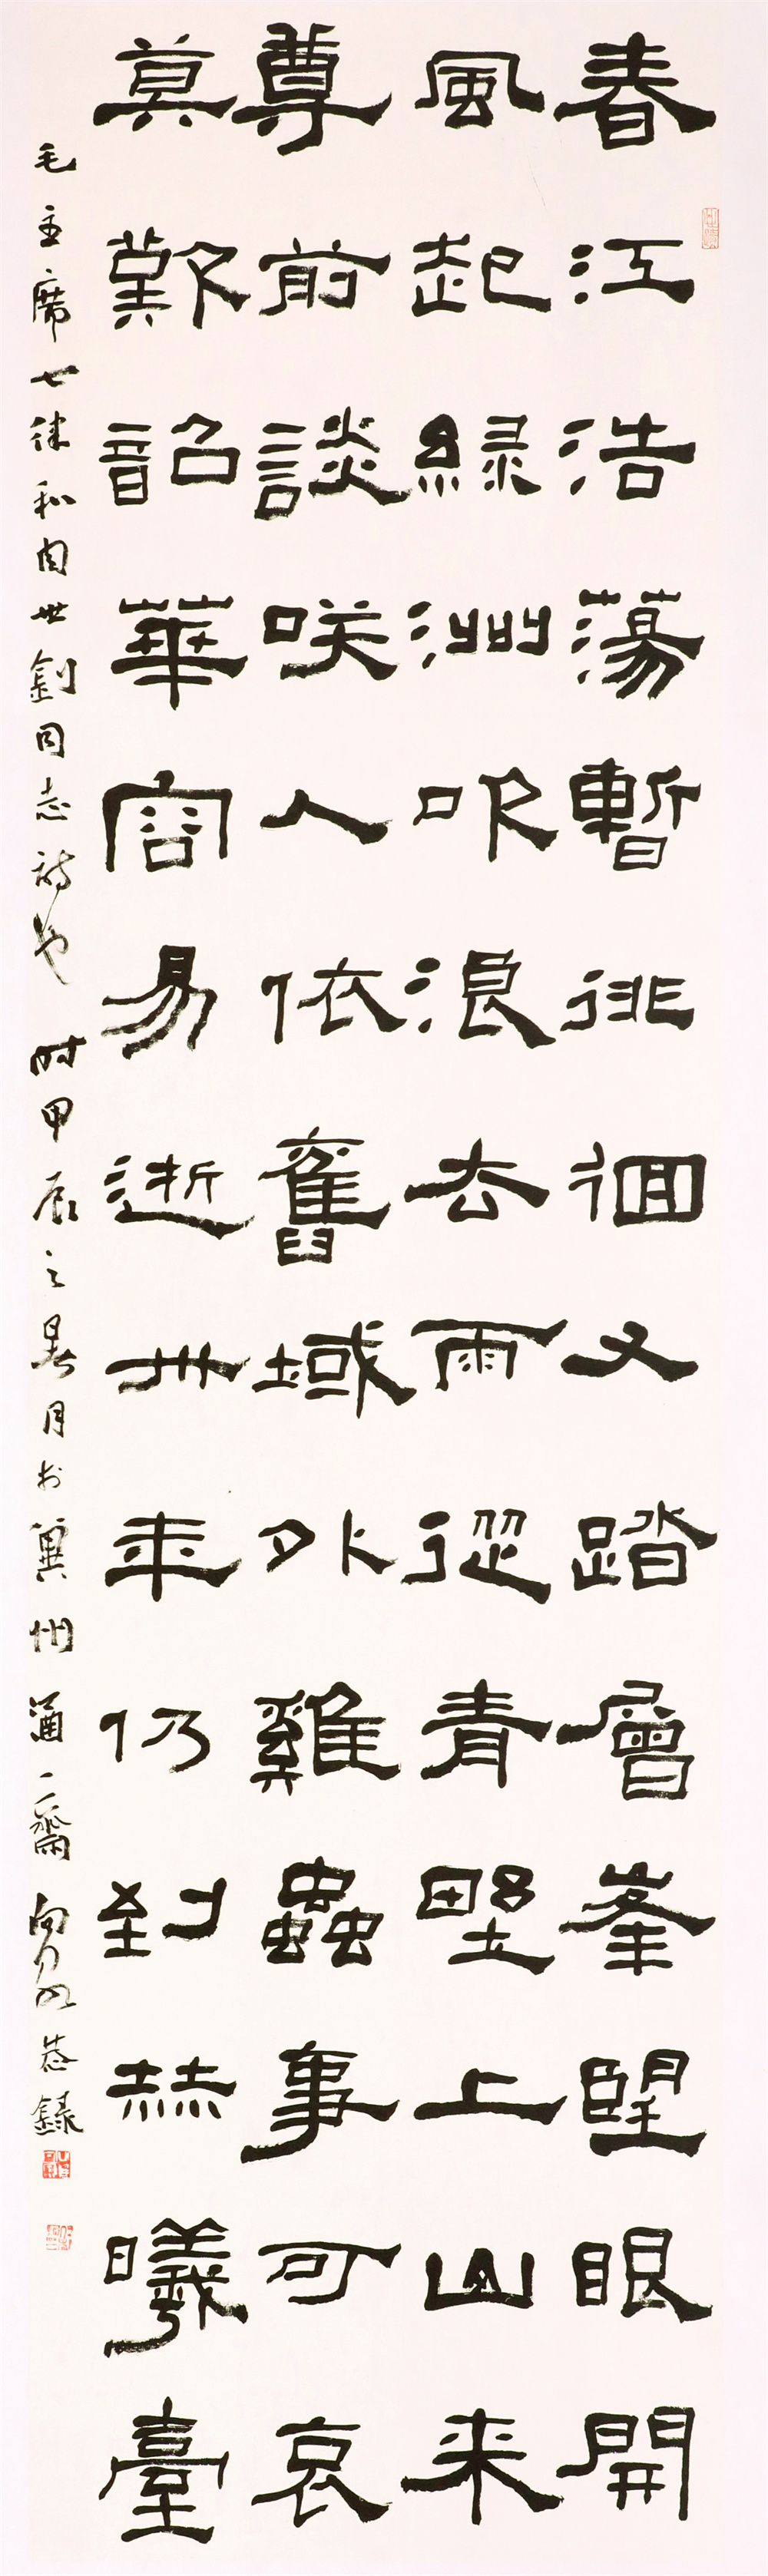 春江浩蕩暫徘徊又踏層峯朢眼開
風起綠洲吹浪去雨從青野上山来
尊前談咲人依舊域外雞蟲事可哀
莫歎韶華容易逝卅年仍到赫曦臺
毛主席七律和周世釗同志詩也 时甲辰之月於冀州齋恭録